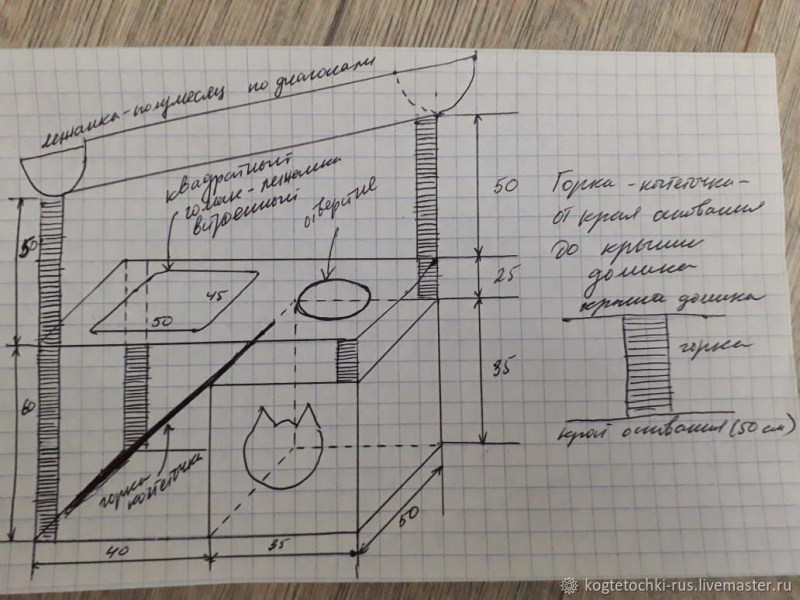 лежанка-полумесяц по диагонали
квадратный
гамак-лежанка
встроенный
отверстие
50
45
50
50
25
60
35
горка
когтеточка
40
35
50
Горка-когтеточка-
от края основания
до крыши
домика
крыша домика
горка
край основания (50 см)
kogtetochki-rus.livemaster.ru